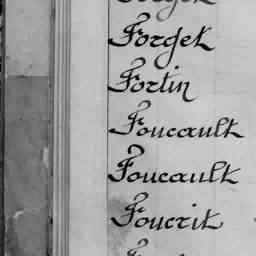 Forget
Fortin
Foucault
Foucault
Foucrit